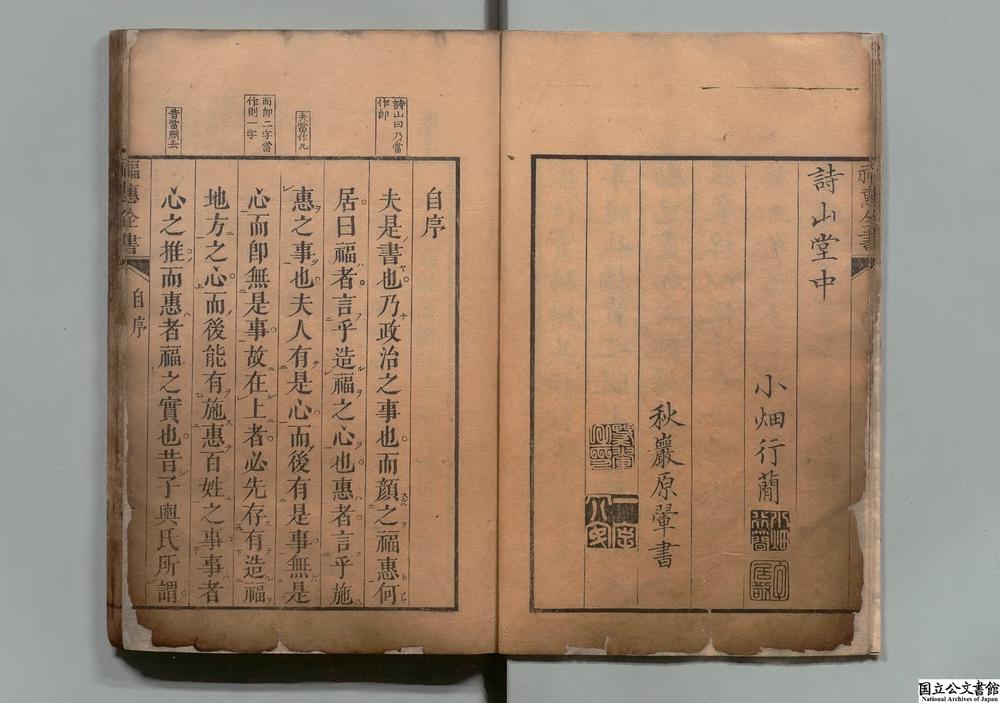 詩山堂中
小畑行蕳
秋巖原翬書
福惠全書
自序
詩山曰乃當
作卽
夫當作凡
而卽二字當
作則一字
昔當刪去
自序
夫是書也乃政治之事也而顏之福惠何
居曰福者言乎造福之心也惠者言乎施
惠之事也夫人有是心而後有是事無是
心而卽無是事故在上者必先存有造福
地方之心而後能有施惠百姓之事事者
心之推而惠者福之實也昔子輿氏所謂
福惠全書
国立公文書館
National Archives of Japan